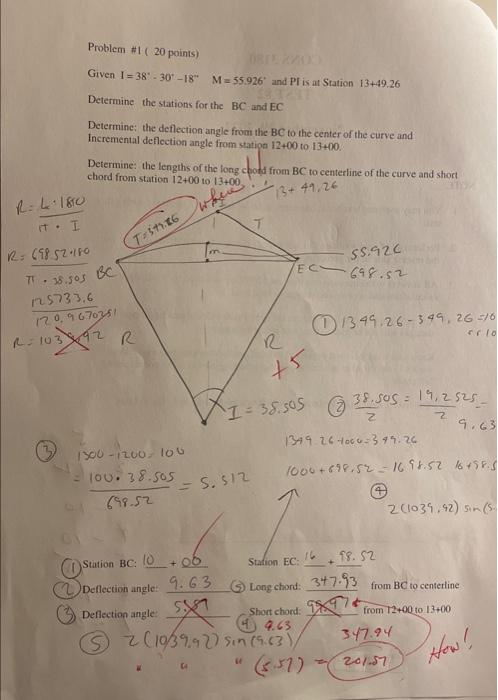 Problem #1 ( 20 points)
Given I = 38° - 30' -18" M = 55.926' and PI is at Station 13+49.26
Determine the stations for the BC and EC
Determine: the deflection angle from the BC to the center of the curve and
Incremental deflection angle from station 12+00 to 13+00.
Determine: the lengths of the long chord from BC to centerline of the curve and short
chord from station 12+00 to 13+00.
where
13+ 49.26
R = L · 180
π · I
T=349.26
I
T
R = 698.52·180
π · 38.505
BC
m
EC
55.926
698.52
125733.6
120.9670351
R = 1039.92
R
R
+5
① 1349.26 - 349.26 = 10
I = 38.505
② 38.505 = 19.2525
2 2
9.63
③ 1300 - 1200 = 100
1349.26-1000=349.26
= 100 · 38.505 = 5.512
698.52
1000+698.52 = 1698.52 16+98.5
④
2(1039.92) sin(5.
① Station BC: 10 + 00 Station EC: 16 + 98.52
② Deflection angle: 9.63 ⑤ Long chord: 347.93 from BC to centerline
③ Deflection angle: Short chord: from 12+00 to 13+00
④ 9.63
347.94
⑤ 2(1039.92) sin(9.63)
" " " (5.57) = 201.57
How!